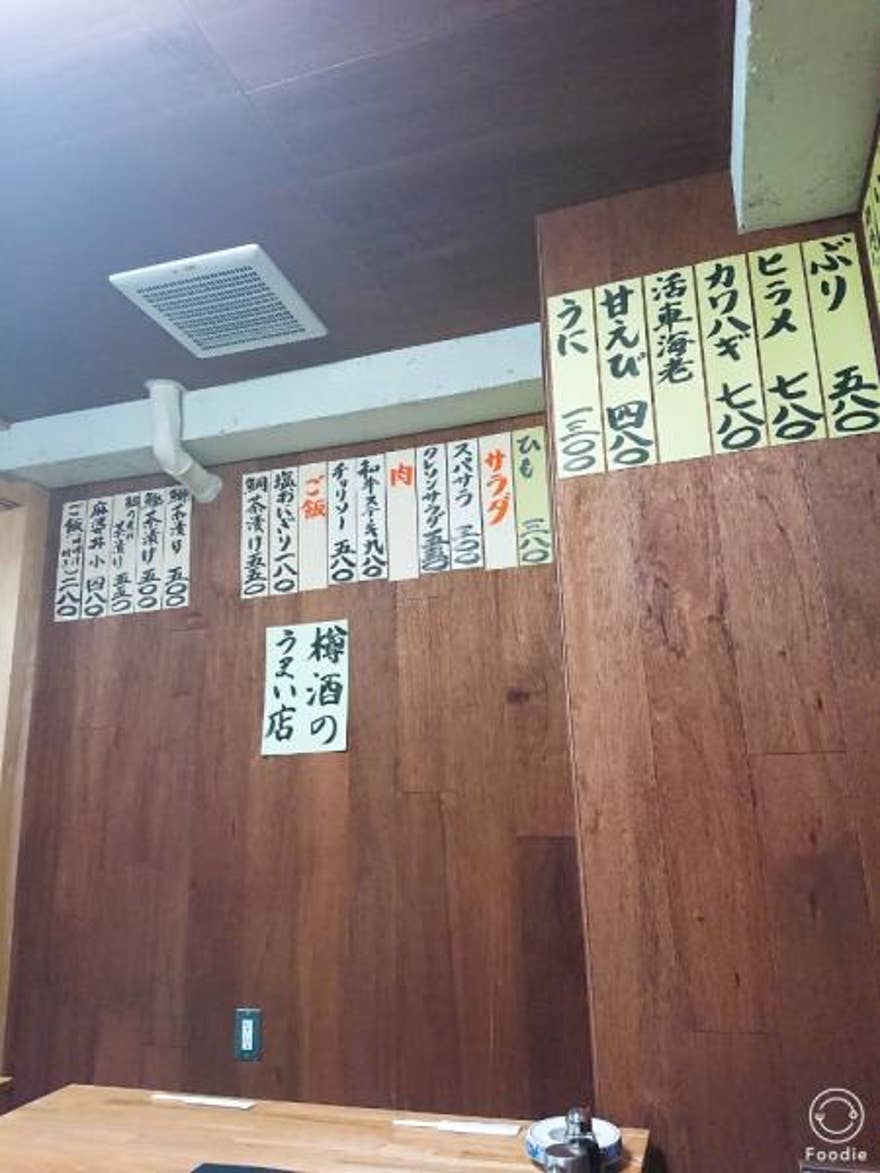 ぶり 五八〇
ヒラメ 七八〇
カワハギ 七八〇
活車海老
甘えび 四八〇
うに 一三〇〇
ひも 三八〇
サラダ
スパサラ 三〇〇
クレソンサラダ 五五〇
肉
和牛ステーキ 九八〇
チョリソー 五八〇
ご飯
塩おにぎり 一八〇
鯛茶漬け 五五〇
茶漬け 五〇〇
茶漬け 五〇〇
茶漬け 五五〇
麻婆丼 小 四八〇
ご飯 二八〇
樽酒の
うまい店
Foodie